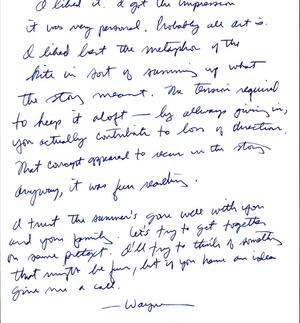 I liked it. I got the impression
it was very personal. Probably all art is.
I liked best the metaphor of the
kite in sort of summing up what
the story meant. The tension required
to keep it aloft — by always giving in,
you actually contribute to loss of direction.
That concept appeared to recur in the story
Anyway, it was fun reading.
I trust the summer's gone well with you
and your family. Let's try to get together
on some pretext. I'll try to think of something
that might be fun, but if you have an idea
give me a call.
— Wayne